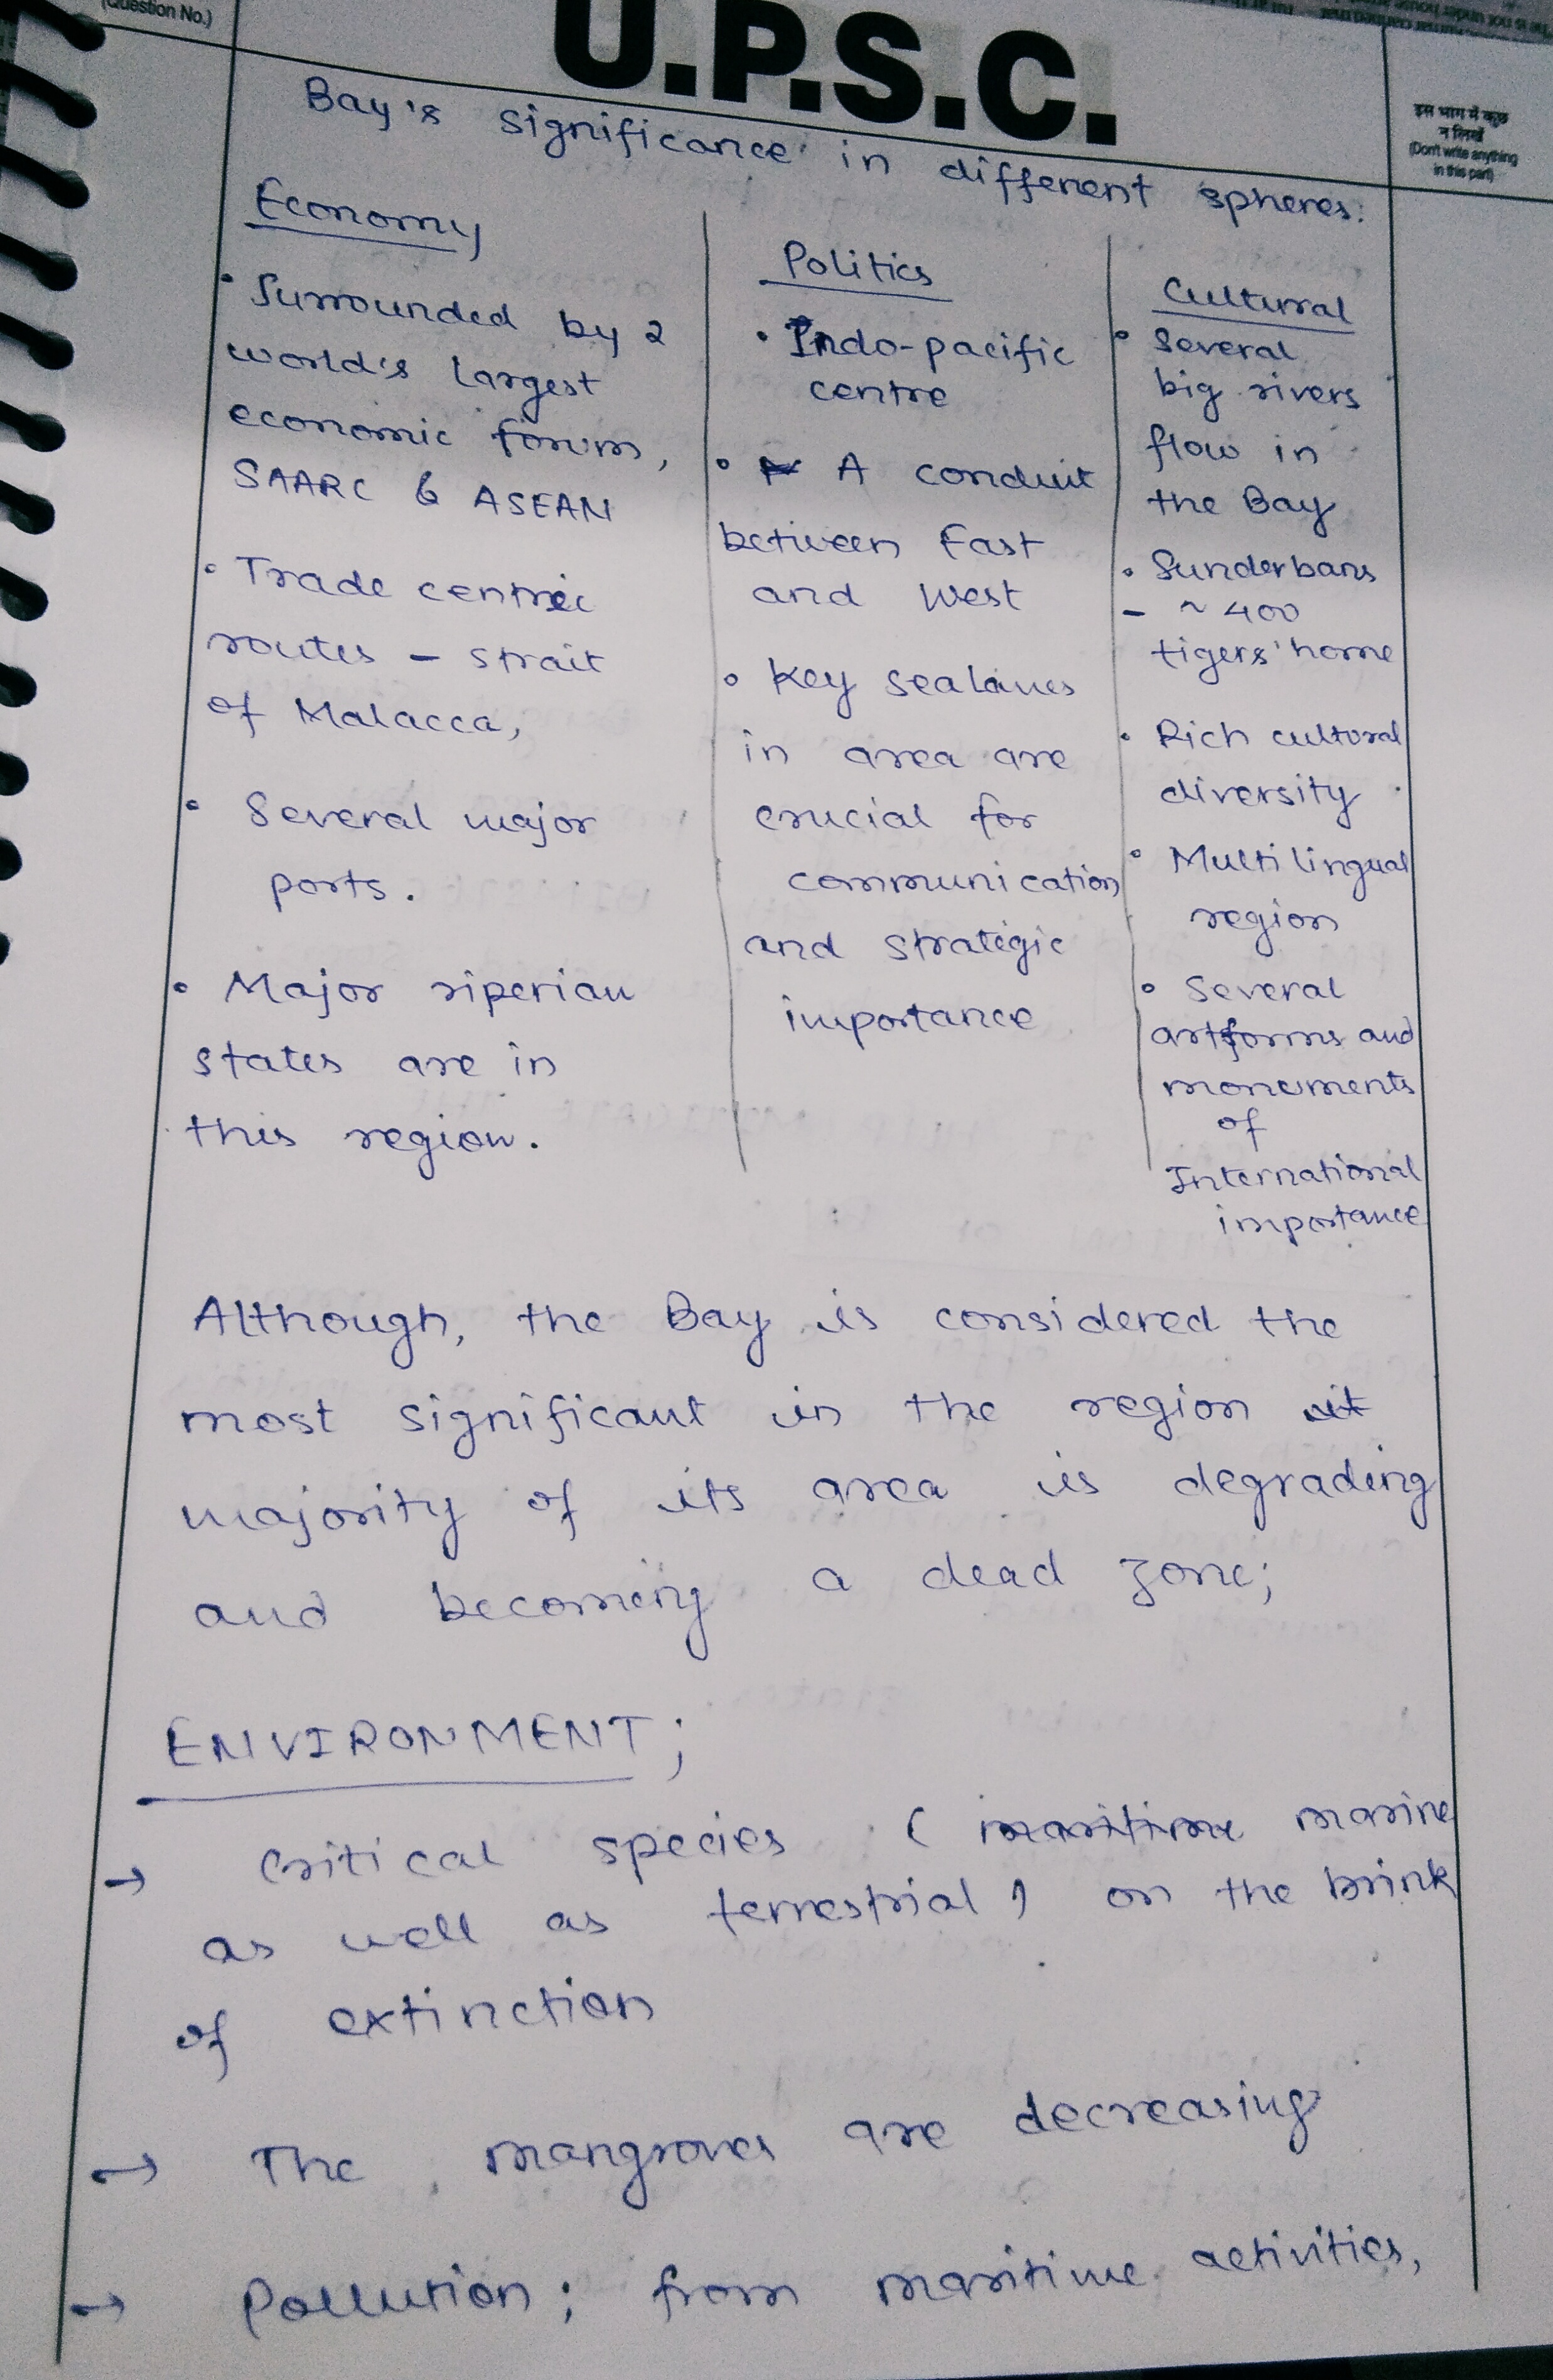 (Question No.)
U.P.S.C.
इस भाग में कुछ
न लिखें
(Don't write anything
in this part)
Bay's significance in different spheres.
Economy
• Surrounded by 2
world's largest
economic forum,
SAARC & ASEAN
• Trade centric
routes – strait
of Malacca,
• Several major
ports.
• Major riperian
states are in
this region.
Politics
• Indo-pacific
centre
• A conduit
between East
and West
• Key sealanes
in area are
crucial for
communication
and strategic
importance
Cultural
• Several
big rivers
flow in
the Bay
• Sunderbans
– ~ 400
tigers' home
• Rich cultural
diversity
• Multilingual
region
• Several
artforms and
monuments
of
International
importance
Although, the Bay is considered the
most significant in the region it
majority of its area is degrading
and becoming a dead zone;
ENVIRONMENT;
→ Critical species (maritime marine
as well as terrestrial) on the brink
of extinction
→ The mangroves are decreasing
→ Pollution; from maritime activities,